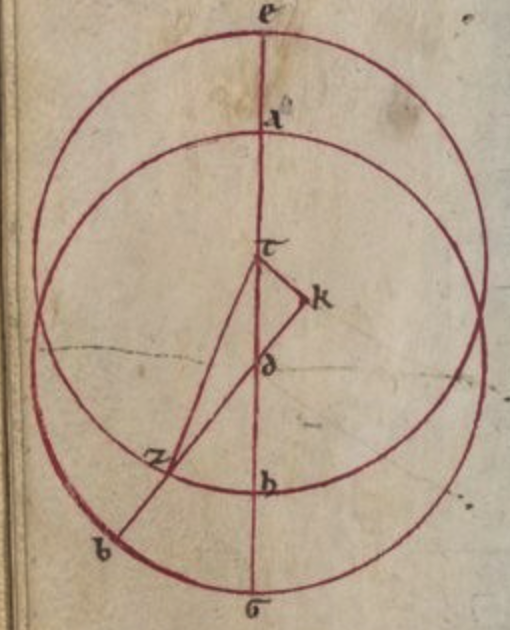 e
a
t
k
d
z
h
b
g